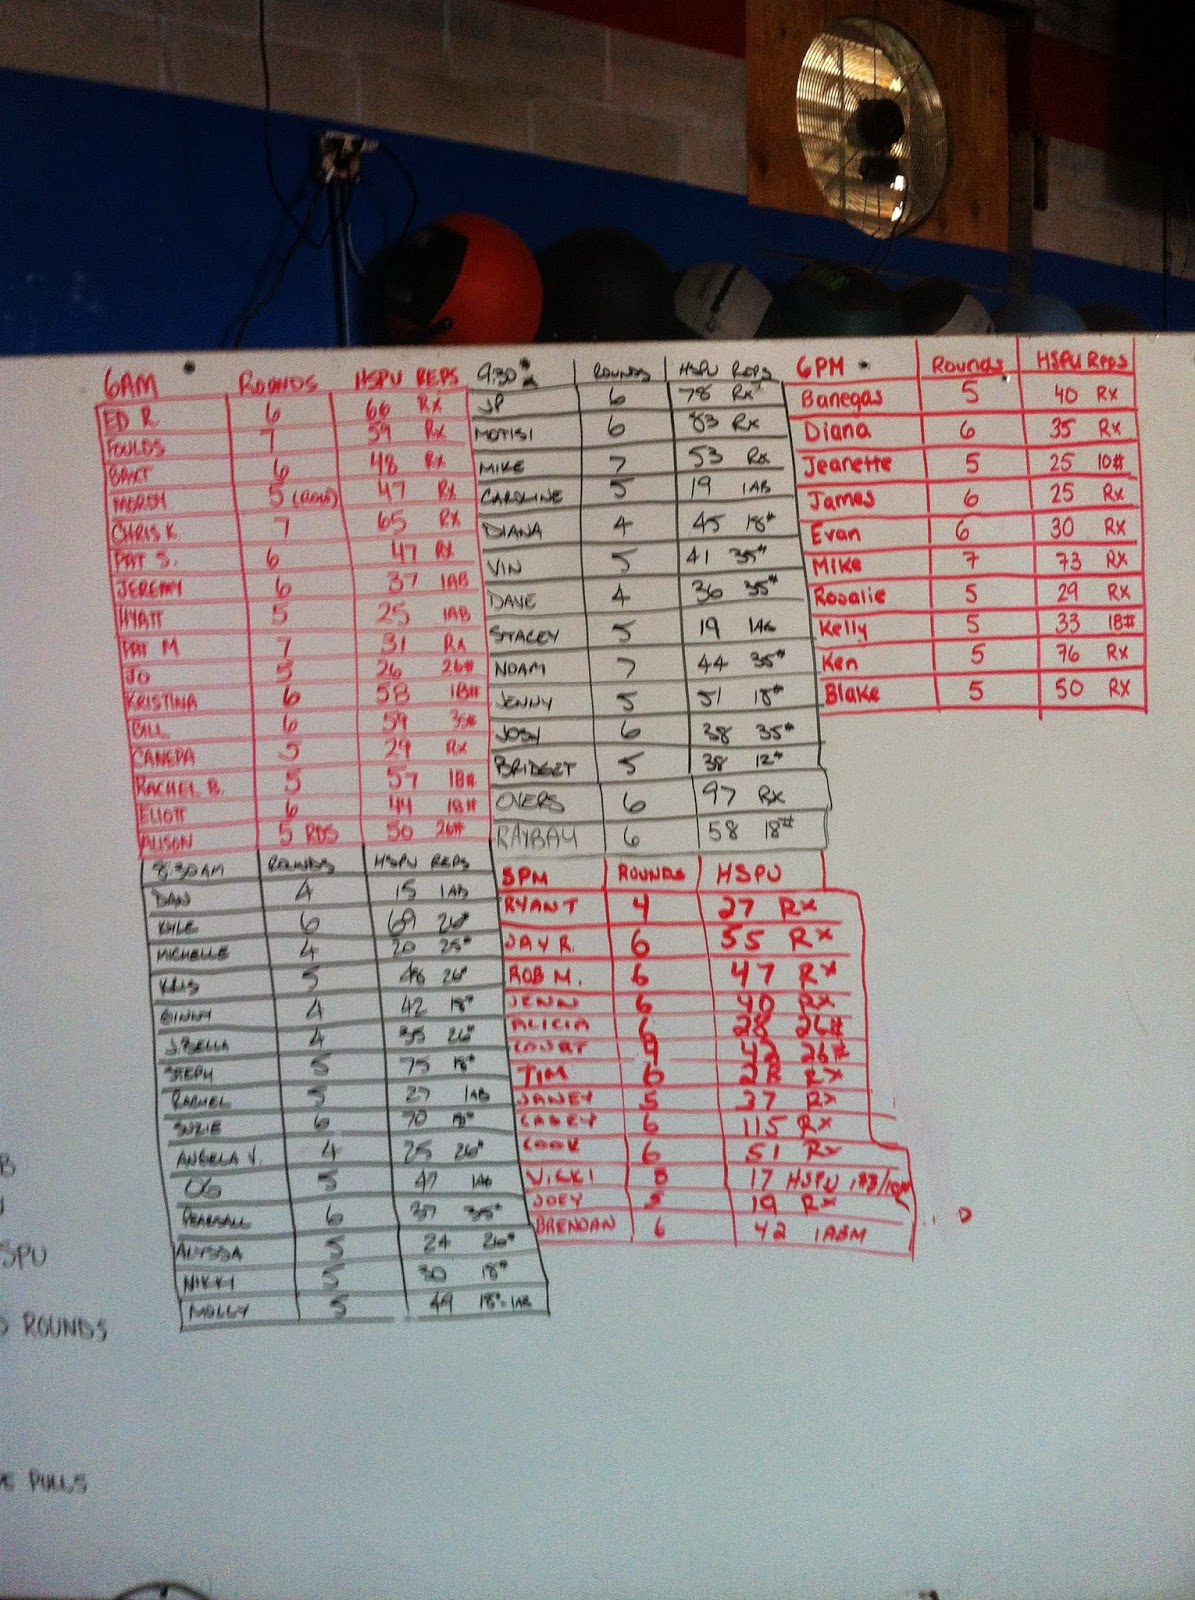 6AM ROUNDS HSPU REPS
ED R. 6 66 RX
FOULDS 7 59 RX
BAXT 6 48 RX
MORDY 5 47 RX
CHRIS K. 7 65 RX
PAT S. 6 47 RX
JEREMY 6 37 1AB
HYATT 5 25 1AB
PAT M 7 31 RX
JO 5 26 26#
KRISTINA 6 58 18#
BILL 6 59 35#
CANEPA 5 29 RX
RACHEL B. 5 57 18#
ELIOTT 6 44 18#
ALISON 5 RDS 50 26#
8:30AM ROUNDS HSPU REPS
DAN 4 15 1AB
KYLE 6 69 26#
MICHELLE 4 20 25#
KRIS 5 48 26#
GINNY 4 42 18#
J.BELLA 4 35 26#
STEPH 5 75 18#
RACHEL 5 27 1AB
SUZIE 6 70 18#
ANGELA V. 4 25 26#
OG 5 47 1AB
PEARSALL 6 37 35#
ALYSSA 5 24 26#
NIKKI 5 30 18#
MOLLY 5 49 18#-1AB
9:30 ROUNDS HSPU REPS
JP 6 78 RX
MOTISI 6 83 RX
MIKE 7 53 RX
CAROLINE 5 19 1AB
DIANA 4 45 18#
VIN 5 41 35#
DAVE 4 36 35#
STACEY 5 19 1AB
NOAM 7 44 35#
JENNY 5 51 18#
JOSY 6 38 35#
BRIDGET 5 38 12#
OVERS 6 97 RX
RAYBAY 6 58 18#
5PM ROUNDS HSPU
RYAN T 4 27 RX
JAY R. 6 55 RX
ROB M. 6 47 RX
JENN 6 40 RX
ALICIA 6 28 26#
COURT 42 26#
TIM 6 28 RX
JANEY 5 37 RX
CASEY 6 115 RX
COOK 6 51 RX
VIKKI 5 17 HSPU
JOEY 5 19 RX
BRENDAN 6 42 1ABM
6PM Rounds HSPU REPS
Banegas 5 40 RX
Diana 6 35 RX
Jeanette 5 25 10#
James 6 25 RX
Evan 6 30 RX
Mike 7 73 RX
Rosalie 5 29 RX
Kelly 5 33 18#
Ken 5 76 RX
Blake 5 50 RX
B
SPU
ROUNDS
PULLS